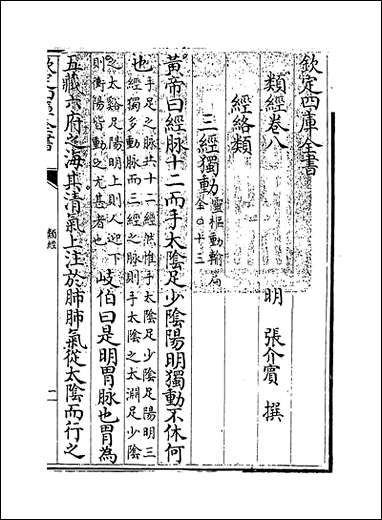 欽定四庫全書
類經卷八
明 張介賓 撰
經絡類
三經獨動 靈樞動輸篇 全 〇 十三
黃帝曰經脉十二而手太陰足少陰陽明獨動不休何
也 手足之脉共十二經然惟手太陰足少陰足陽明三
經獨多動脉而三經之脉則手太陰之太淵足少陰
之太谿足陽明上則人迎下
則衝陽皆動之尤甚者也 岐伯曰是明胃脉也胃為
五藏六府之海其清氣上注於肺肺氣從太陰而行之
欽定四庫全書
類經